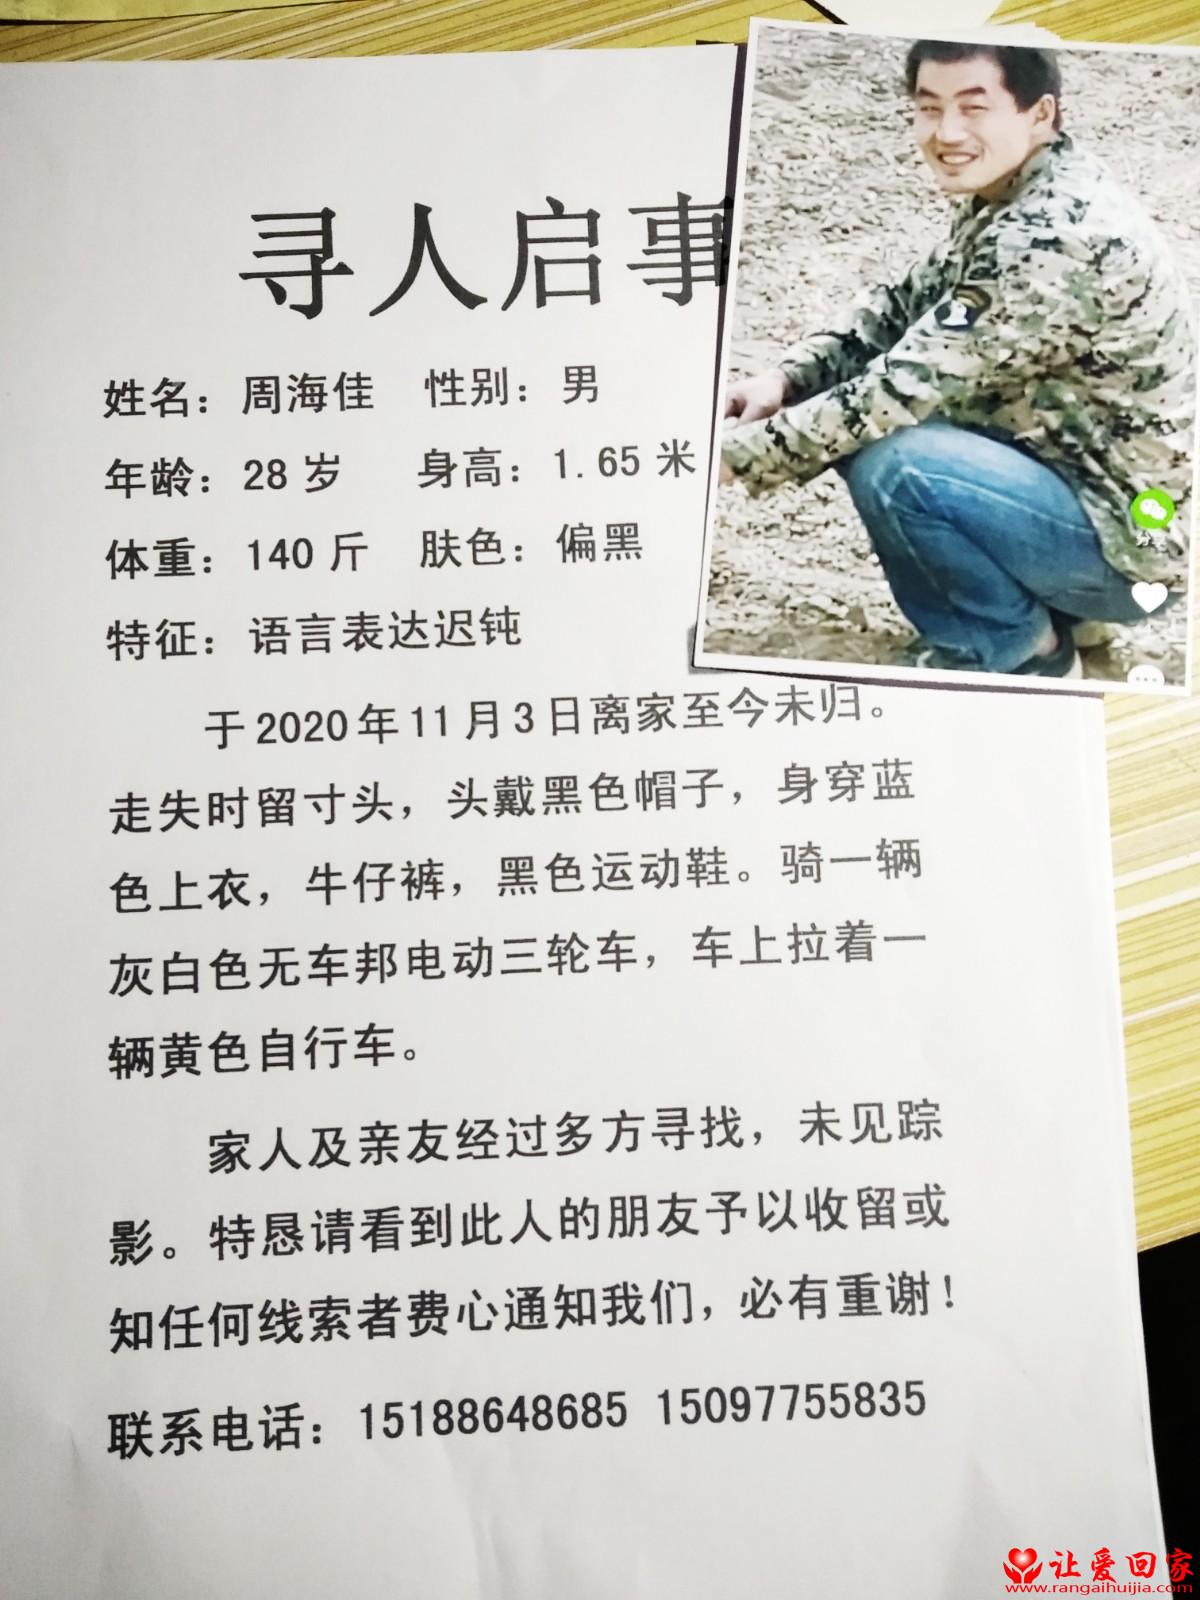 寻人启事
姓名：周海佳 性别：男
年龄：28 岁 身高：1.65 米
体重：140 斤 肤色：偏黑
特征：语言表达迟钝
于2020年11月3日离家至今未归。
走失时留寸头，头戴黑色帽子，身穿蓝
色上衣，牛仔裤，黑色运动鞋。骑一辆
灰白色无车邦电动三轮车，车上拉着一
辆黄色自行车。
家人及亲友经过多方寻找，未见踪
影。特恳请看到此人的朋友予以收留或
知任何线索者费心通知我们，必有重谢！
联系电话：15188648685 15097755835
分享
让爱回家
www.rangaihuijia.com